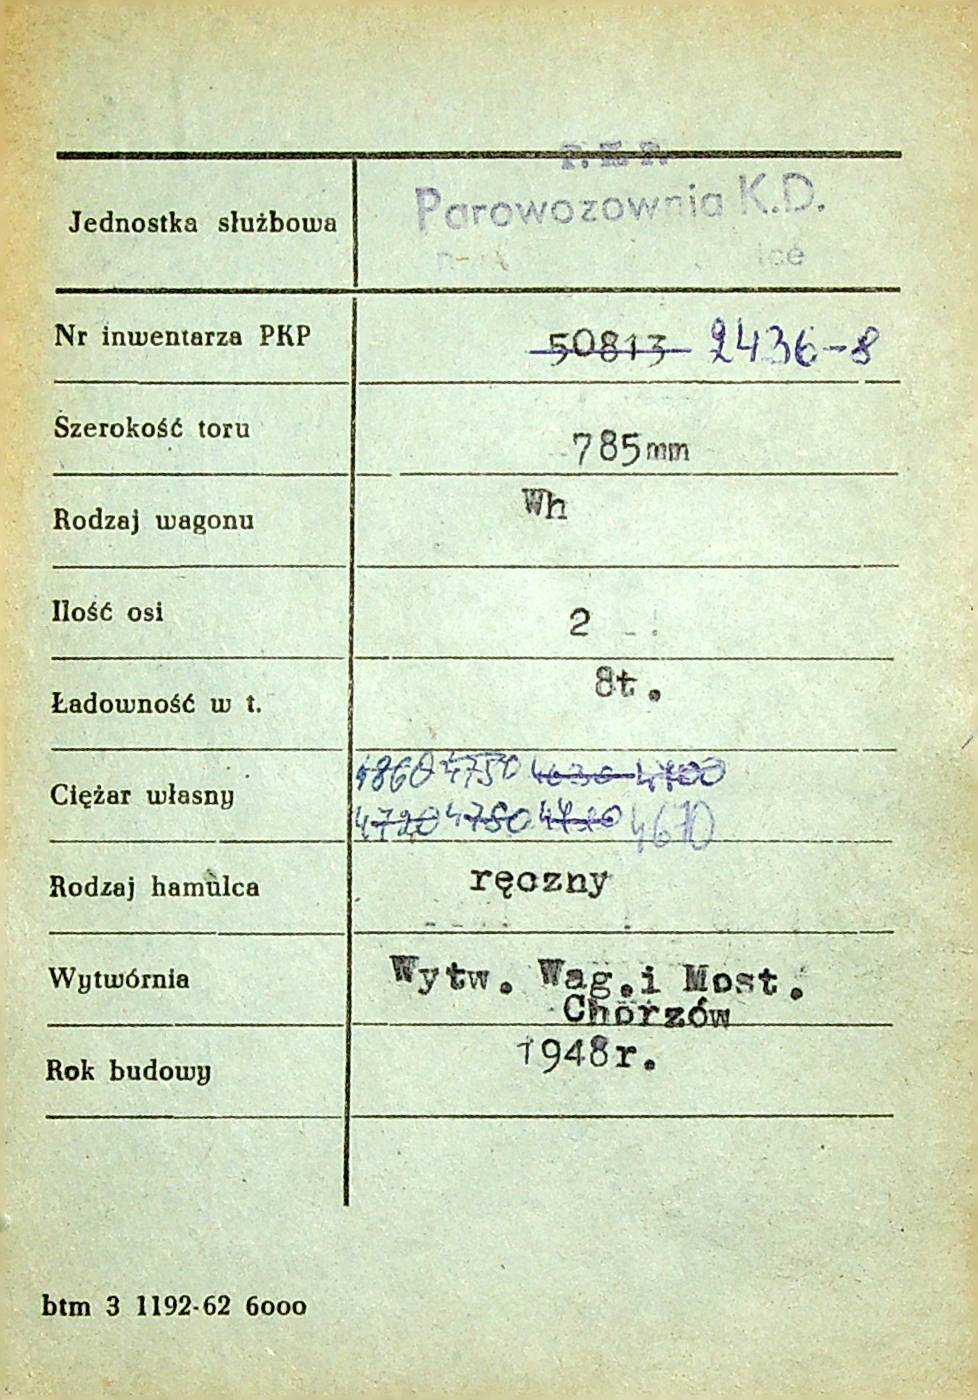 P.K.P.
Jednostka służbowa Parowozownia K.D.
Nr inwentarza PKP 50813 2436-8
Szerokość toru 785mm
Rodzaj wagonu Wh
Ilość osi 2
Ładowność w t. 8t.
4860 4750 4630 4700
Ciężar własny
4720 4780 4670
Rodzaj hamulca ręczny
Wytwórnia Wytw. Wag.i Most.
Chorzów
Rok budowy 1948r.
btm 3 1192-62 6000